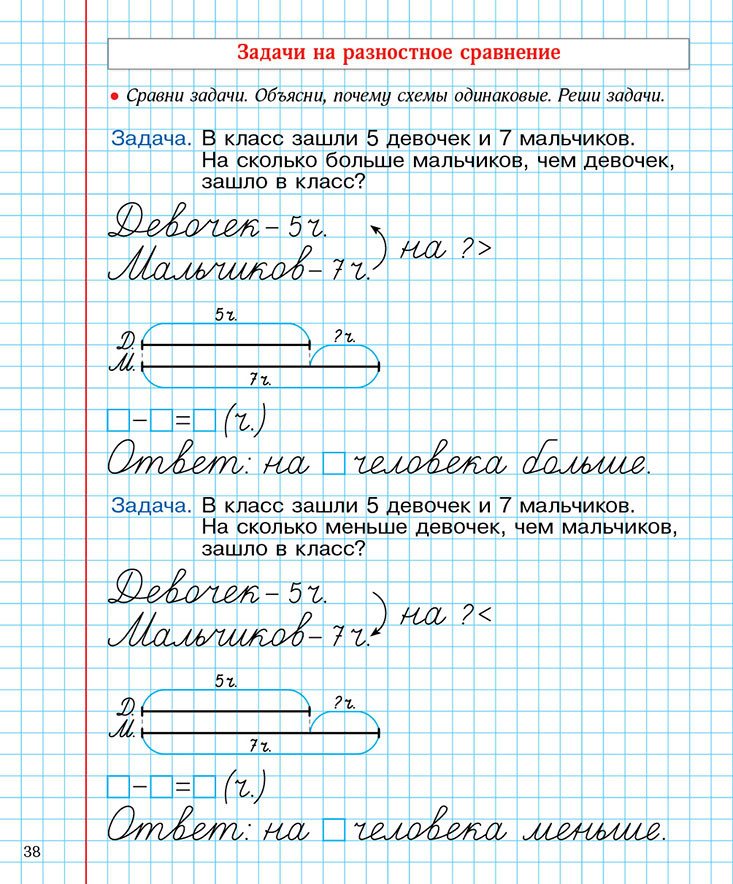 Задачи на разностное сравнение
• Сравни задачи. Объясни, почему схемы одинаковые. Реши задачи.
Задача. В класс зашли 5 девочек и 7 мальчиков.
На сколько больше мальчиков, чем девочек,
зашло в класс?
Девочек – 5 ч.
на ? >
Мальчиков – 7 ч.
5 ч.
Д. ? ч.
М.
7 ч.
□ – □ = □ (ч.)
Ответ: на □ человека больше.
Задача. В класс зашли 5 девочек и 7 мальчиков.
На сколько меньше девочек, чем мальчиков,
зашло в класс?
Девочек – 5 ч.
на ? <
Мальчиков – 7 ч.
5 ч.
Д. ? ч.
М.
7 ч.
□ – □ = □ (ч.)
Ответ: на □ человека меньше.
38